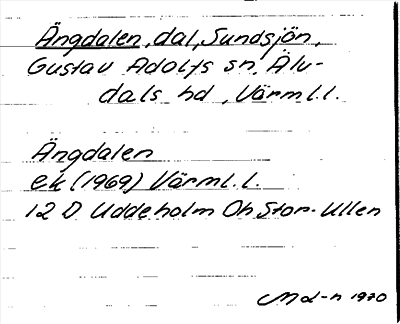 Ängdalen, dal, Sundsjön,
Gustav Adolfs sn, Älv-
dals hd, Värml.l.
Ängdalen
ek (1969) Värml.l.
12 D Uddeholm Oh Stor-Ullen
Md-n 1970